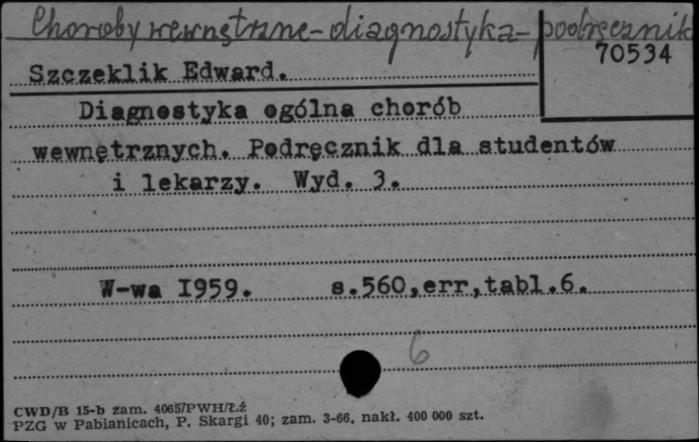 Choroby wewnętrzne - diagnostyka - podręcznik
70534
Szczeklik Edward.
Diagnostyka ogólna chorób
wewnętrznych. Podręcznik dla studentów
i lekarzy. Wyd. 3.
W-wa I959. s.560,err,tabl.6.
6
CWD/B 15-b zam. 4065/PWH/Łź
PZG w Pabianicach, P. Skargi 40; zam. 3-66, nakł. 400 000 szt.